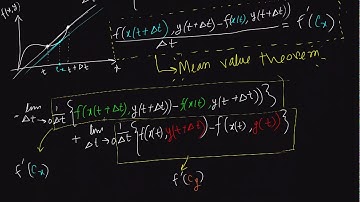 f(x,y)
t Cx t+Δt x
f(x(t+Δt), y(t+Δt)-f(x(t), y(t+Δt)) / Δt = f'(Cx)
Mean value theorem
lim Δt→0 1/Δt {f(x(t+Δt), y(t+Δt))-f(x(t), y(t+Δt))}
+ lim Δt→0 1/Δt {f(x(t), y(t+Δt))-f(x(t), y(t))}
f'(Cx)
f'(Cy)